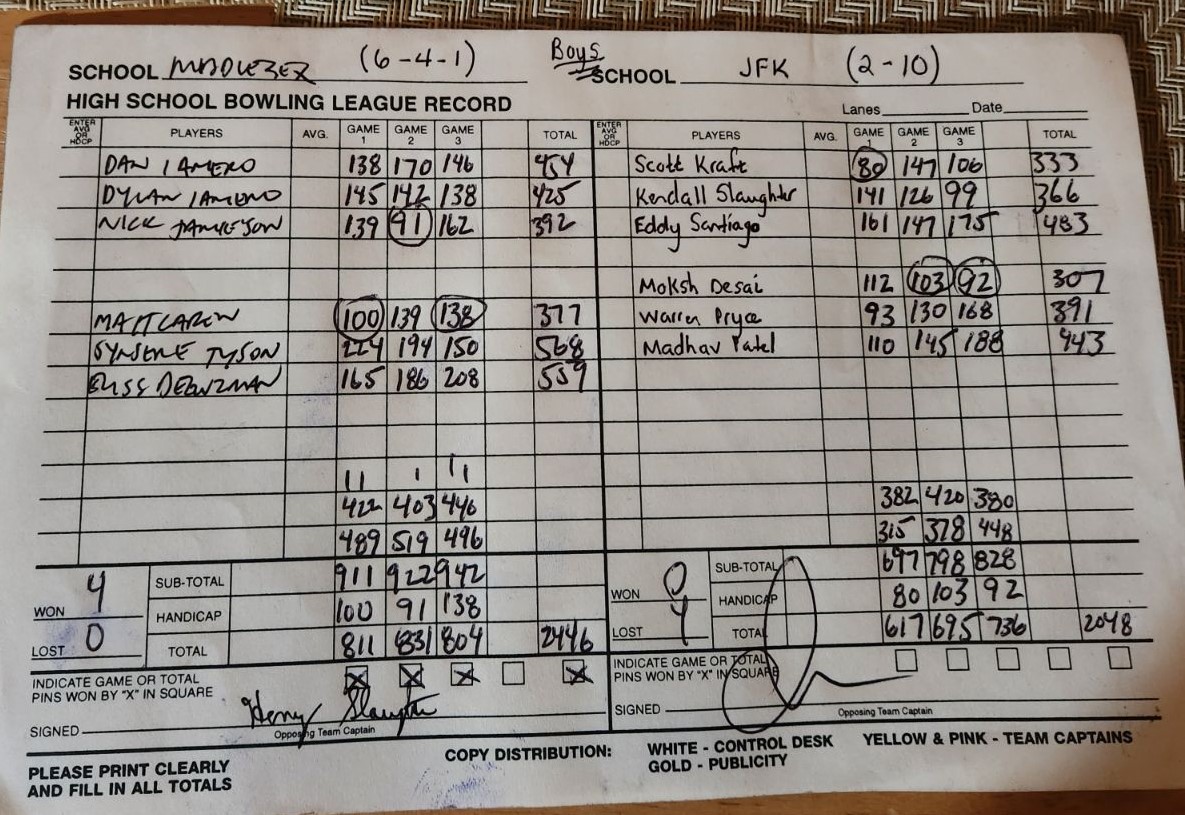 Boys
SCHOOL MIDDLESEX (6-4-1) SCHOOL JFK (2-10)
HIGH SCHOOL BOWLING LEAGUE RECORD Lanes Date
ENTER AVG OR HDCP PLAYERS AVG. GAME 1 GAME 2 GAME 3 TOTAL ENTER AVG OR HDCP PLAYERS AVG. GAME 1 GAME 2 GAME 3 TOTAL
DAN IAMENO 138 170 146 454 Scott Kraft 80 147 106 333
DYLAN IAMENO 145 142 138 425 Kendall Slaughter 141 126 99 366
NICK JAMIESON 139 91 162 392 Eddy Santiago 161 147 175 483
Moksh Desai 112 103 92 307
MATT CAREW 100 139 138 377 Warren Pryce 93 130 168 391
TYSON 224 194 150 568 Madhav Patel 110 145 188 443
165 186 208 559
11 1 11
422 403 446 382 420 380
489 519 496 315 378 448
WON 4 SUB-TOTAL 911 922 942 WON 0 SUB-TOTAL 697 798 828
HANDICAP 100 91 138 HANDICAP 80 103 92
LOST 0 TOTAL 811 831 804 2446 LOST 4 TOTAL 617 695 736 2048
INDICATE GAME OR TOTAL PINS WON BY "X" IN SQUARE X X X X INDICATE GAME OR TOTAL PINS WON BY "X" IN SQUARE
SIGNED Henry Slaughter SIGNED
Opposing Team Captain Opposing Team Captain
PLEASE PRINT CLEARLY AND FILL IN ALL TOTALS
COPY DISTRIBUTION: WHITE - CONTROL DESK YELLOW & PINK - TEAM CAPTAINS
GOLD - PUBLICITY